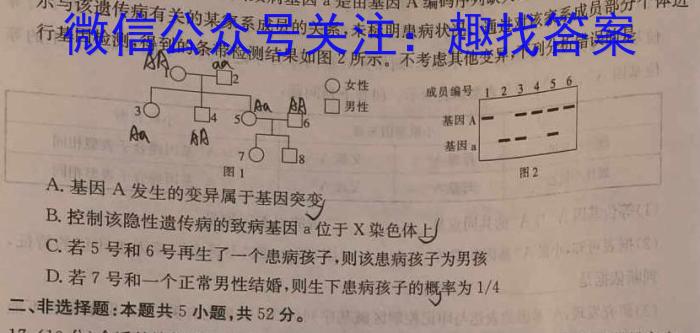 示与该遗传病有关的某家系成员的关系
行基因检测,得到的条带检测结果如图 2 所示。不考虑其他变异,下列分析错误的是
微信公众号关注：趣找答案
AA aa
1 2
女性
男性
成员编号 1 2 3 4 5 6
基因 A
基因 a
3 4 5 6
Aa AA Aa AA
7 8
图 1
图 2
A. 基因 A 发生的变异属于基因突变
B. 控制该隐性遗传病的致病基因 a 位于 X 染色体上
C. 若 5 号和 6 号再生了一个患病孩子,则该患病孩子为男孩
D. 若 7 号和一个正常男性结婚,则生下患病孩子的概率为 1/4
二、非选择题:本题共 5 小题,共 52 分。